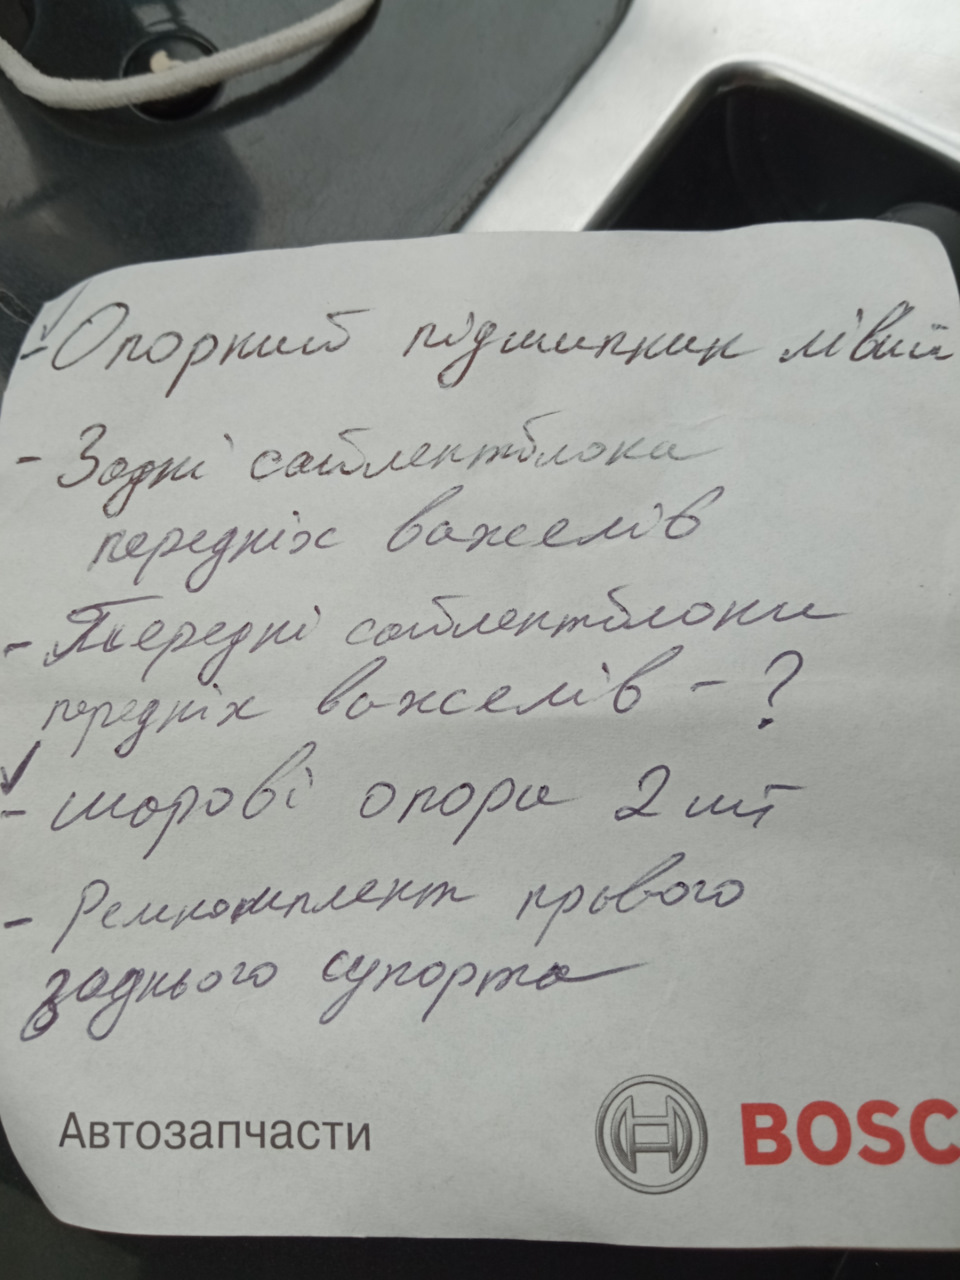 ✓
- Опорний підшипник лівий
- Задні сайлентблоки
передніх важелів
- Передні сайлентблоки
передніх важелів - ?
✓
- шарові опори 2 шт
- Ремкомплект правого
заднього супорта
Автозапчасти
BOSC